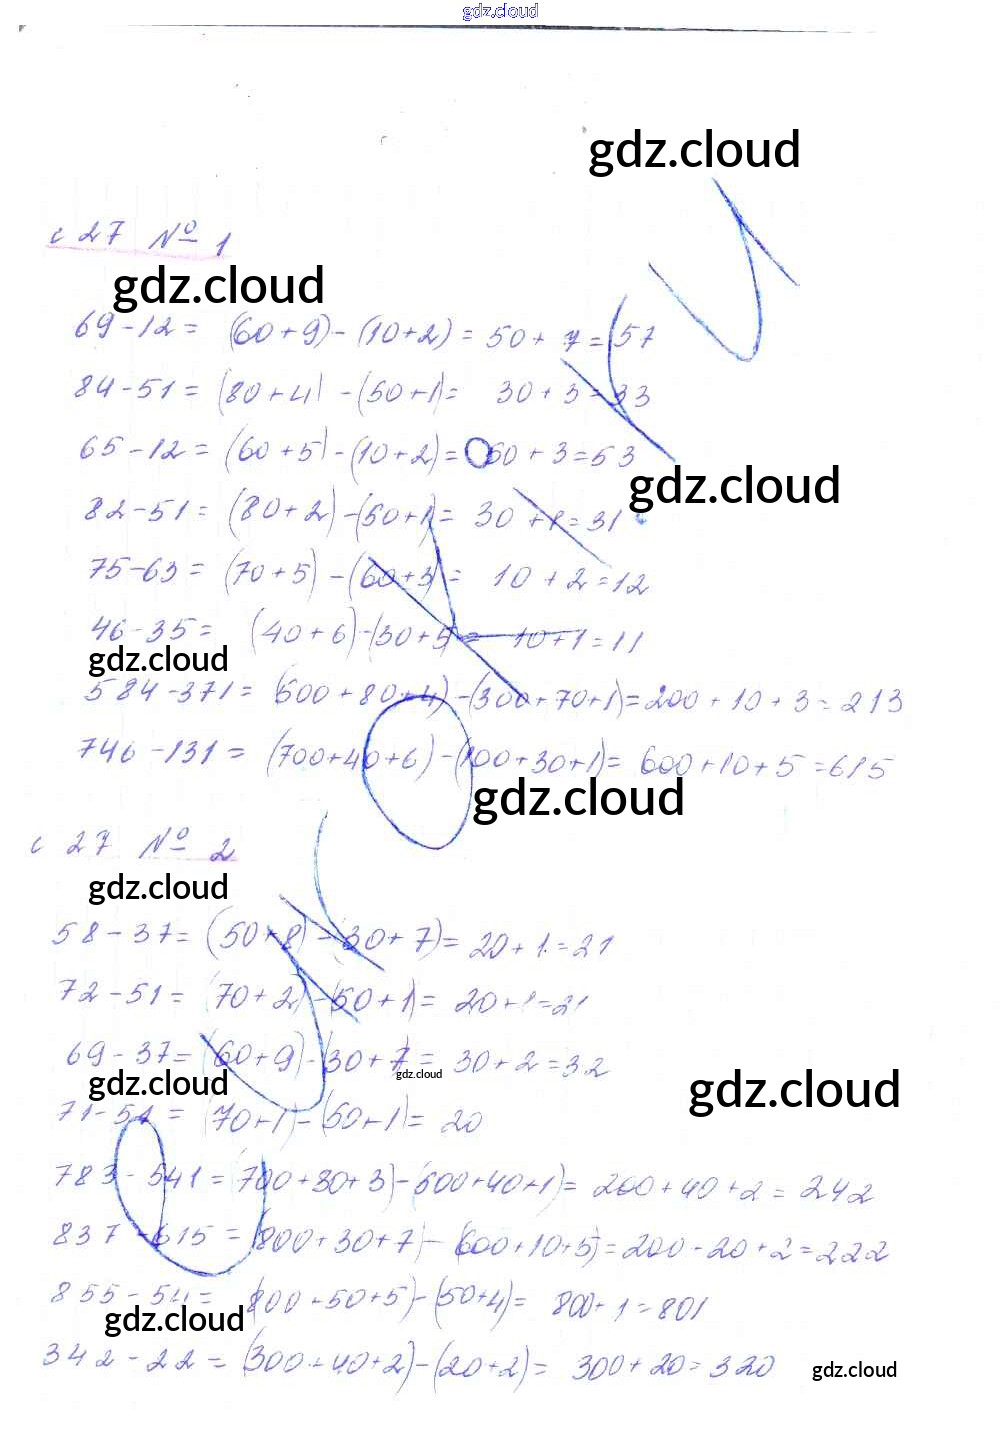 gdz.cloud
gdz.cloud
с 27 № 1
gdz.cloud
69-12= (60+9)-(10+2)=50+7=57
84-51= (80+4)-(50+1)= 30+3=33
65-12= (60+5)-(10+2)= 50+3=53
gdz.cloud
82-51= (80+2)-(50+1)= 30+1=31
75-63= (70+5)-(60+3)= 10+2=12
46-35= (40+6)-(30+5)= 10+1=11
gdz.cloud
584-371= (500+80+4)-(300+70+1)=200+10+3=213
746-131= (700+40+6)-(100+30+1)= 600+10+5=615
gdz.cloud
с 27 № 2
gdz.cloud
58-37= (50+8)-30+7)= 20+1=21
72-51= (70+2)-(50+1)= 20+1=21
69-37= (60+9)-(30+7= 30+2=32
gdz.cloud
gdz.cloud
gdz.cloud
71-51= (70+1)-(50+1)= 20
783-541= (700+80+3)-(500+40+1)= 200+40+2=242
837-615= (800+30+7)-(600+10+5)=200+20+2=222
855-54= (800+50+5)-(50+4)= 800+1=801
gdz.cloud
342-22= (300+40+2)-(20+2)= 300+20=320
gdz.cloud